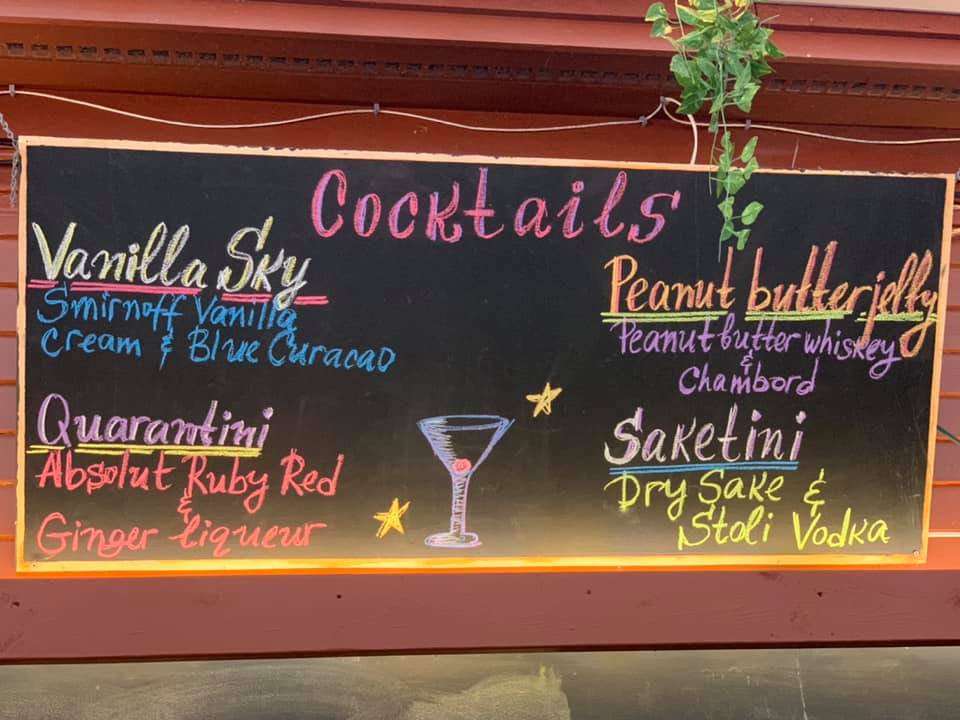 Cocktails
Vanilla Sky
Smirnoff Vanilla
Cream & Blue Curacao
Quarantini
Absolut Ruby Red
&
Ginger liqueur
Peanut butter jelly
Peanut butter whiskey
&
Chambord
Saketini
Dry Sake &
Stoli Vodka